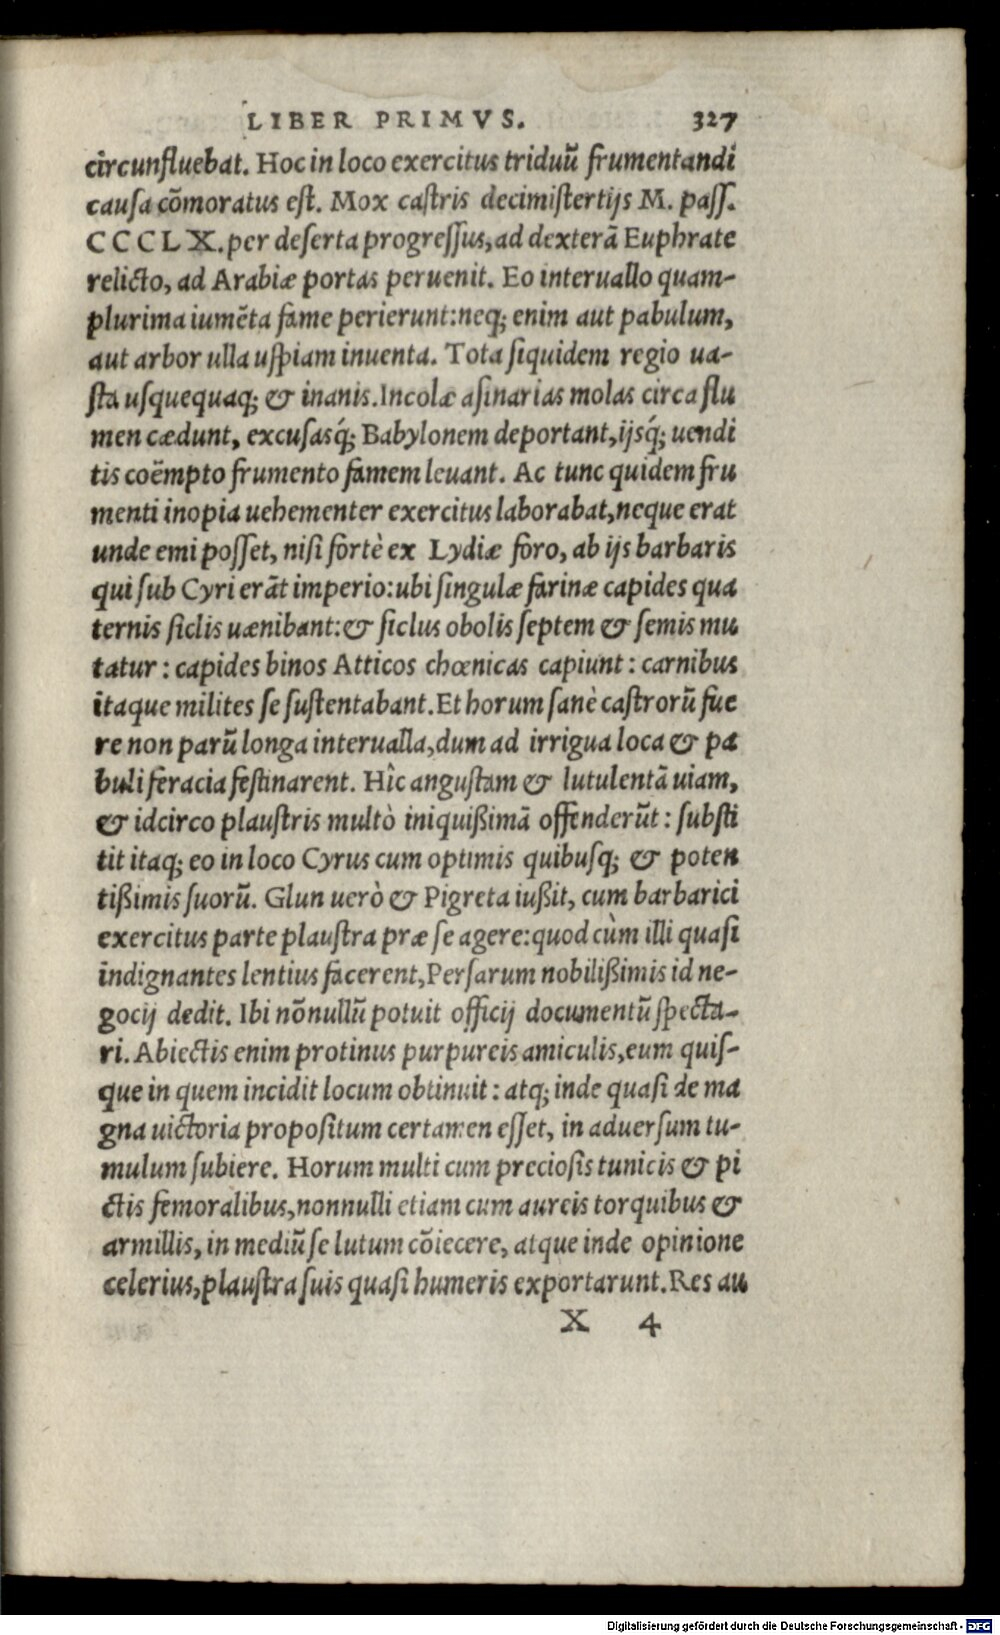 LIBER PRIMVS. 327
circunfluebat. Hoc in loco exercitus triduũ frumentandi
causa cõmoratus est. Mox castris decimistertijs M. pass.
CCCLX. per deserta progressus, ad dexterã Euphrate
relicto, ad Arabiæ portas peruenit. Eo interuallo quam-
plurima iumẽta fame perierunt: neq; enim aut pabulum,
aut arbor ulla uspiam inuenta. Tota siquidem regio ua-
sta usquequaq; & inanis. Incolæ asinarias molas circa flu
men cædunt, excusasq́; Babylonem deportant, ijsq́; uendi
tis coëmpto frumento famem leuant. Ac tunc quidem fru
menti inopia uehementer exercitus laborabat, neque erat
unde emi posset, nisi fortè ex Lydiæ foro, ab ijs barbaris
qui sub Cyri erãt imperio: ubi singulæ farinæ capides qua
ternis siclis uænibant: & siclus obolis septem & semis mu
tatur: capides binos Atticos chœnicas capiunt: carnibus
itaque milites se sustentabant. Et horum sanè castrorũ fue
re non parũ longa interualla, dum ad irrigua loca & pa
buli feracia festinarent. Hîc angustam & lutulentã uiam,
& idcirco plaustris multò iniquißimã offenderũt: substi
tit itaq; eo in loco Cyrus cum optimis quibusq; & poten
tißimis suorũ. Glun uerò & Pigreta iußit, cum barbarici
exercitus parte plaustra præ se agere: quod cùm illi quasi
indignantes lentius facerent, Persarum nobilißimis id ne-
gocij dedit. Ibi nõnullũ potuit officij documentũ specta-
ri. Abiectis enim protinus purpureis amiculis, eum quis-
que in quem incidit locum obtinuit: atq; inde quasi de ma
gna uictoria propositum certamen esset, in aduersum tu-
mulum subiere. Horum multi cum preciosis tunicis & pi
ctis femoralibus, nonnulli etiam cum aureis torquibus &
armillis, in mediũ se lutum cõiecere, atque inde opinione
celerius, plaustra suis quasi humeris exportarunt. Res au
X 4
Digitalisierung gefördert durch die Deutsche Forschungsgemeinschaft - DFG